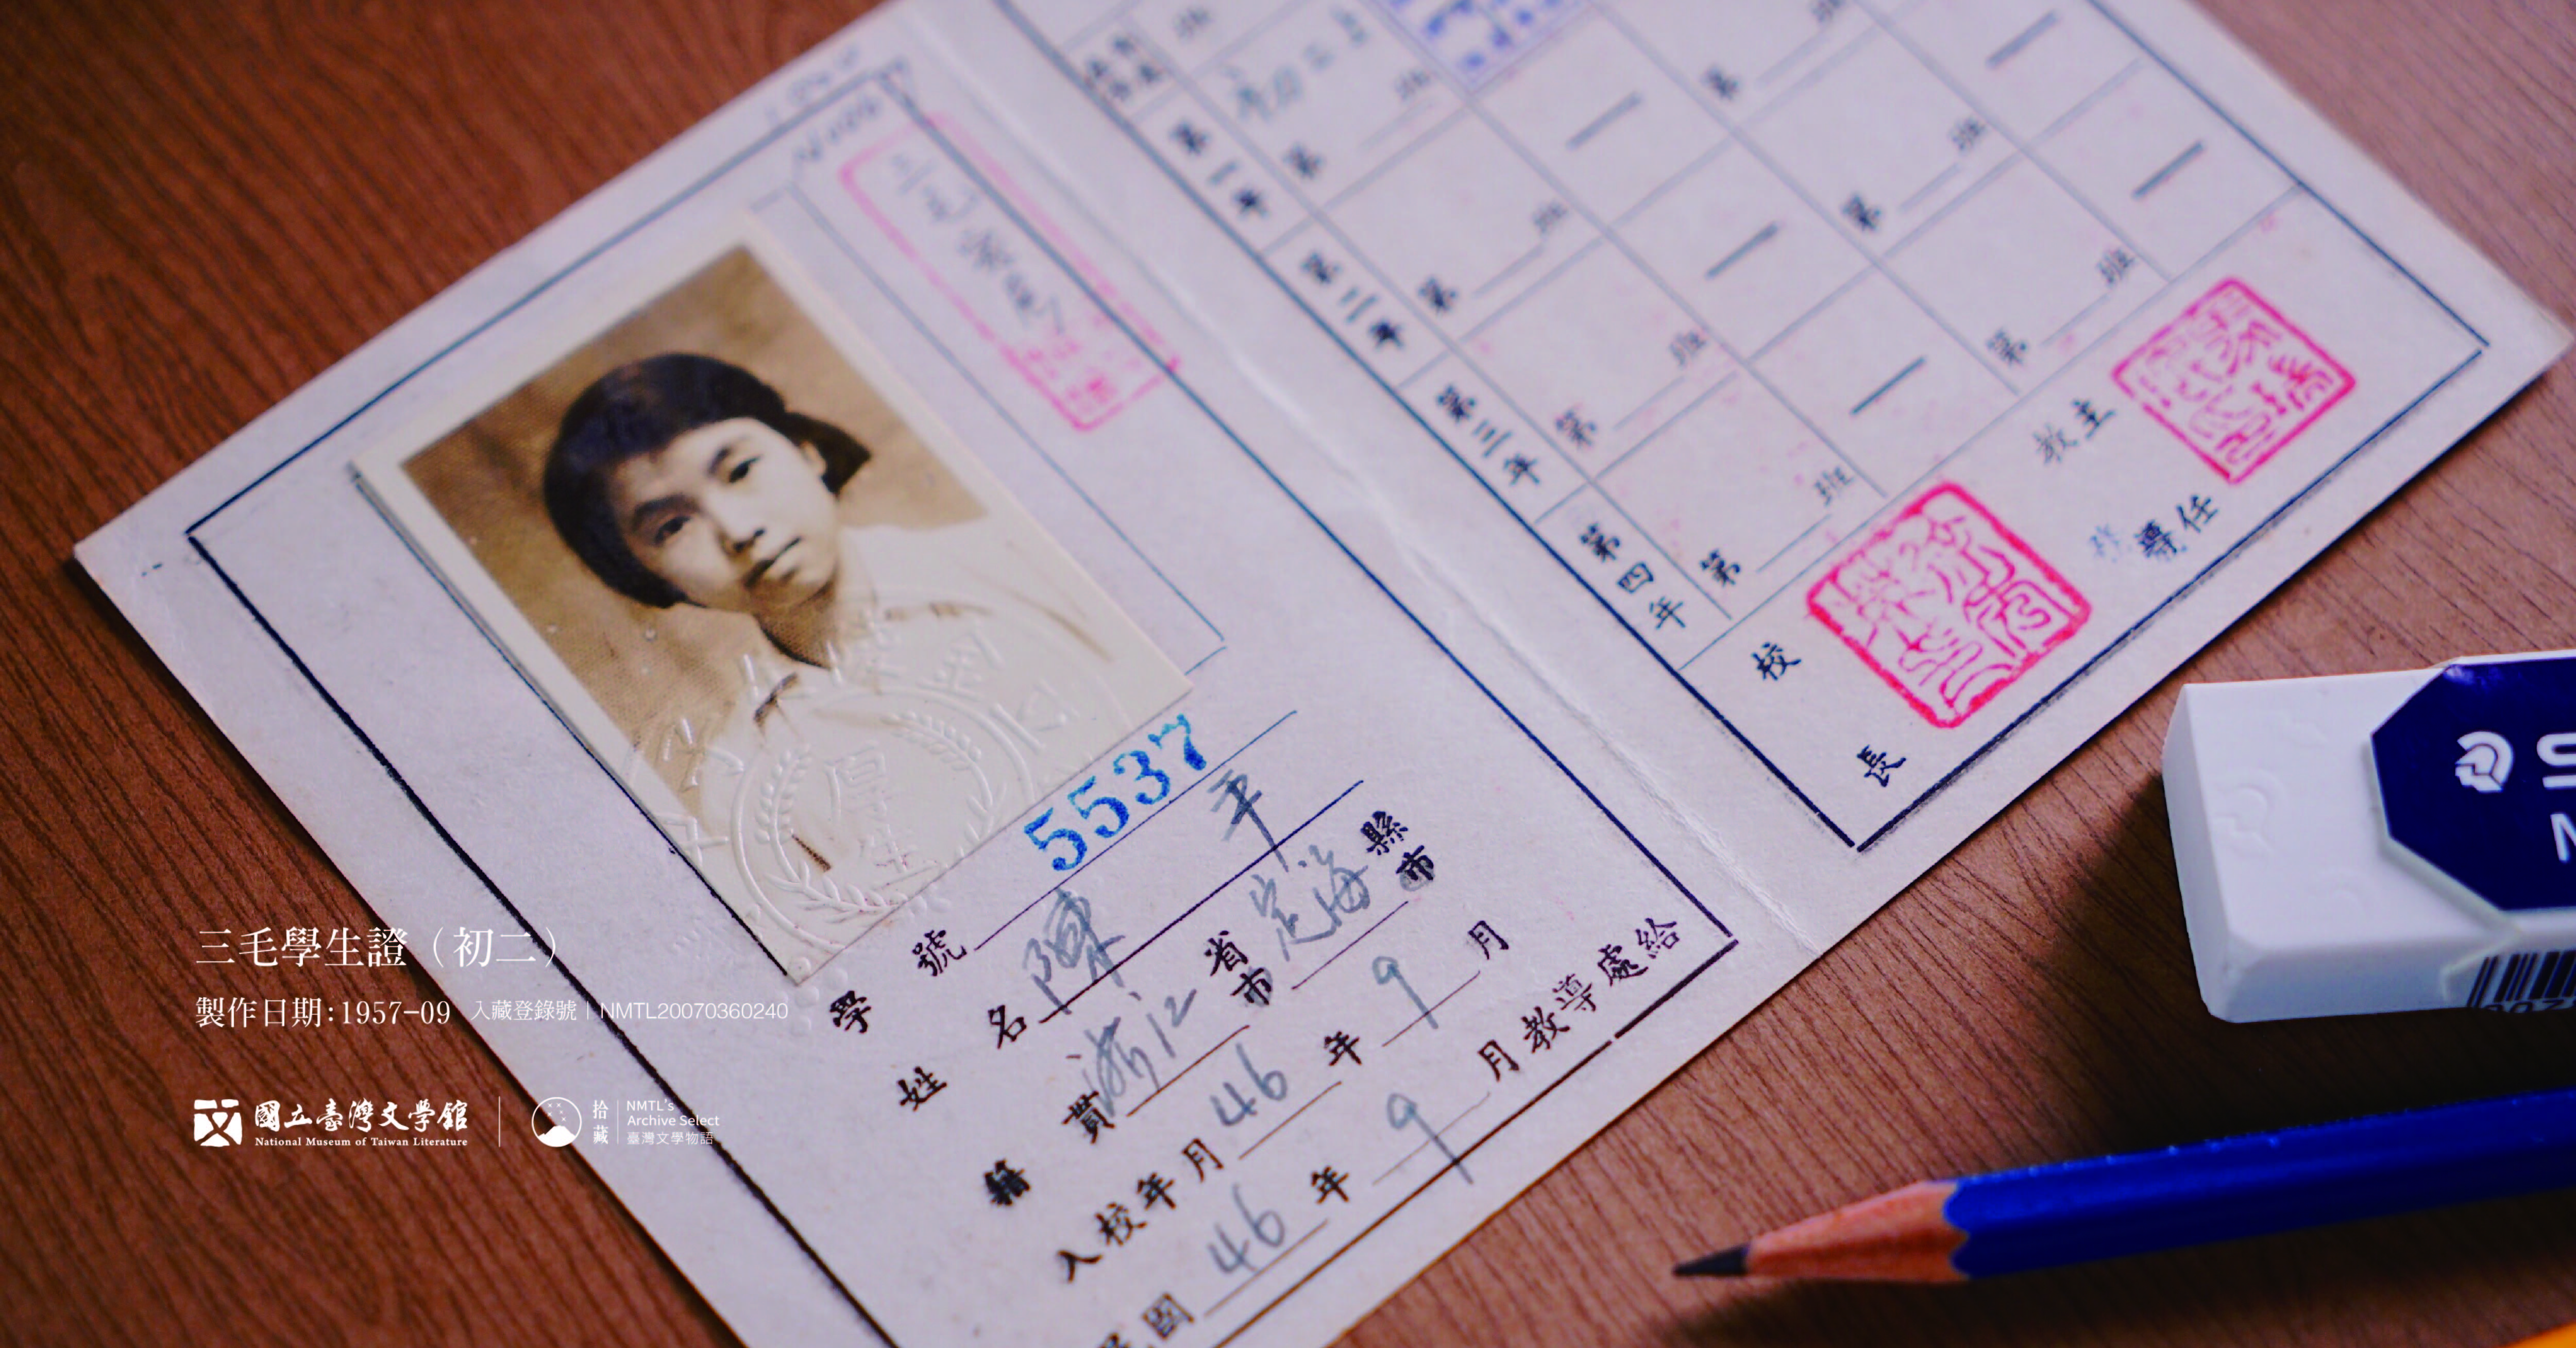 5537
學號
姓名 陳平
籍貫 浙江 省市 定海 縣市
入校年月 46 年 9 月
民國 46 年 9 月教導處給
初二
第 班
第 班
第 班
第 班
第 班
第 班
第 班
第 班
第一年
第二年
第三年
第四年
校長
教主
導任
厚生
三毛學生證（初二）
製作日期:1957-09 入藏登錄號｜NMTL20070360240
國立臺灣文學館
National Museum of Taiwan Literature
拾藏
NMTL's
Archive Select
臺灣文學物語